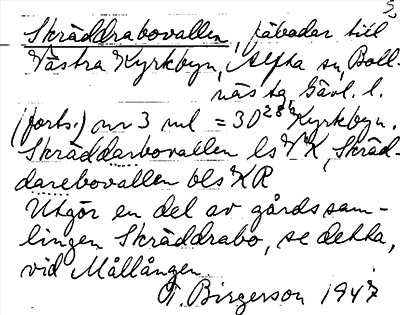 Skräddrabovallen, fäbodar till
Västra Kyrkbyn, Alfta sn, Boll-
näs tg Gävl. l.
(forts.) nr 3 ml = 30 Kyrkbyn.
Skräddarbovallen ls VK, Skräd-
darebovallen bls KR
Utgör en del av gårdssam-
lingen Skräddrabo, se detta,
vid Mållången
Birgerson 1947